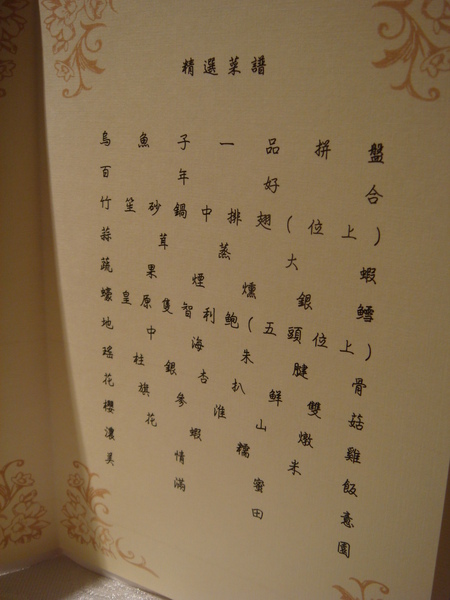 精選菜譜
烏魚子一品拼盤
百年好合
竹笙砂鍋中排翅(位上)
蒜茸蒸大蝦
蔬果煙燻銀鱈
蠔皇原隻智利鮑(五頭位上)
地中海朱腱骨
瑤柱銀杏扒鮮雙菇
花旗參淮山燉雞
櫻花蝦糯米飯
濃情蜜意
美滿田園